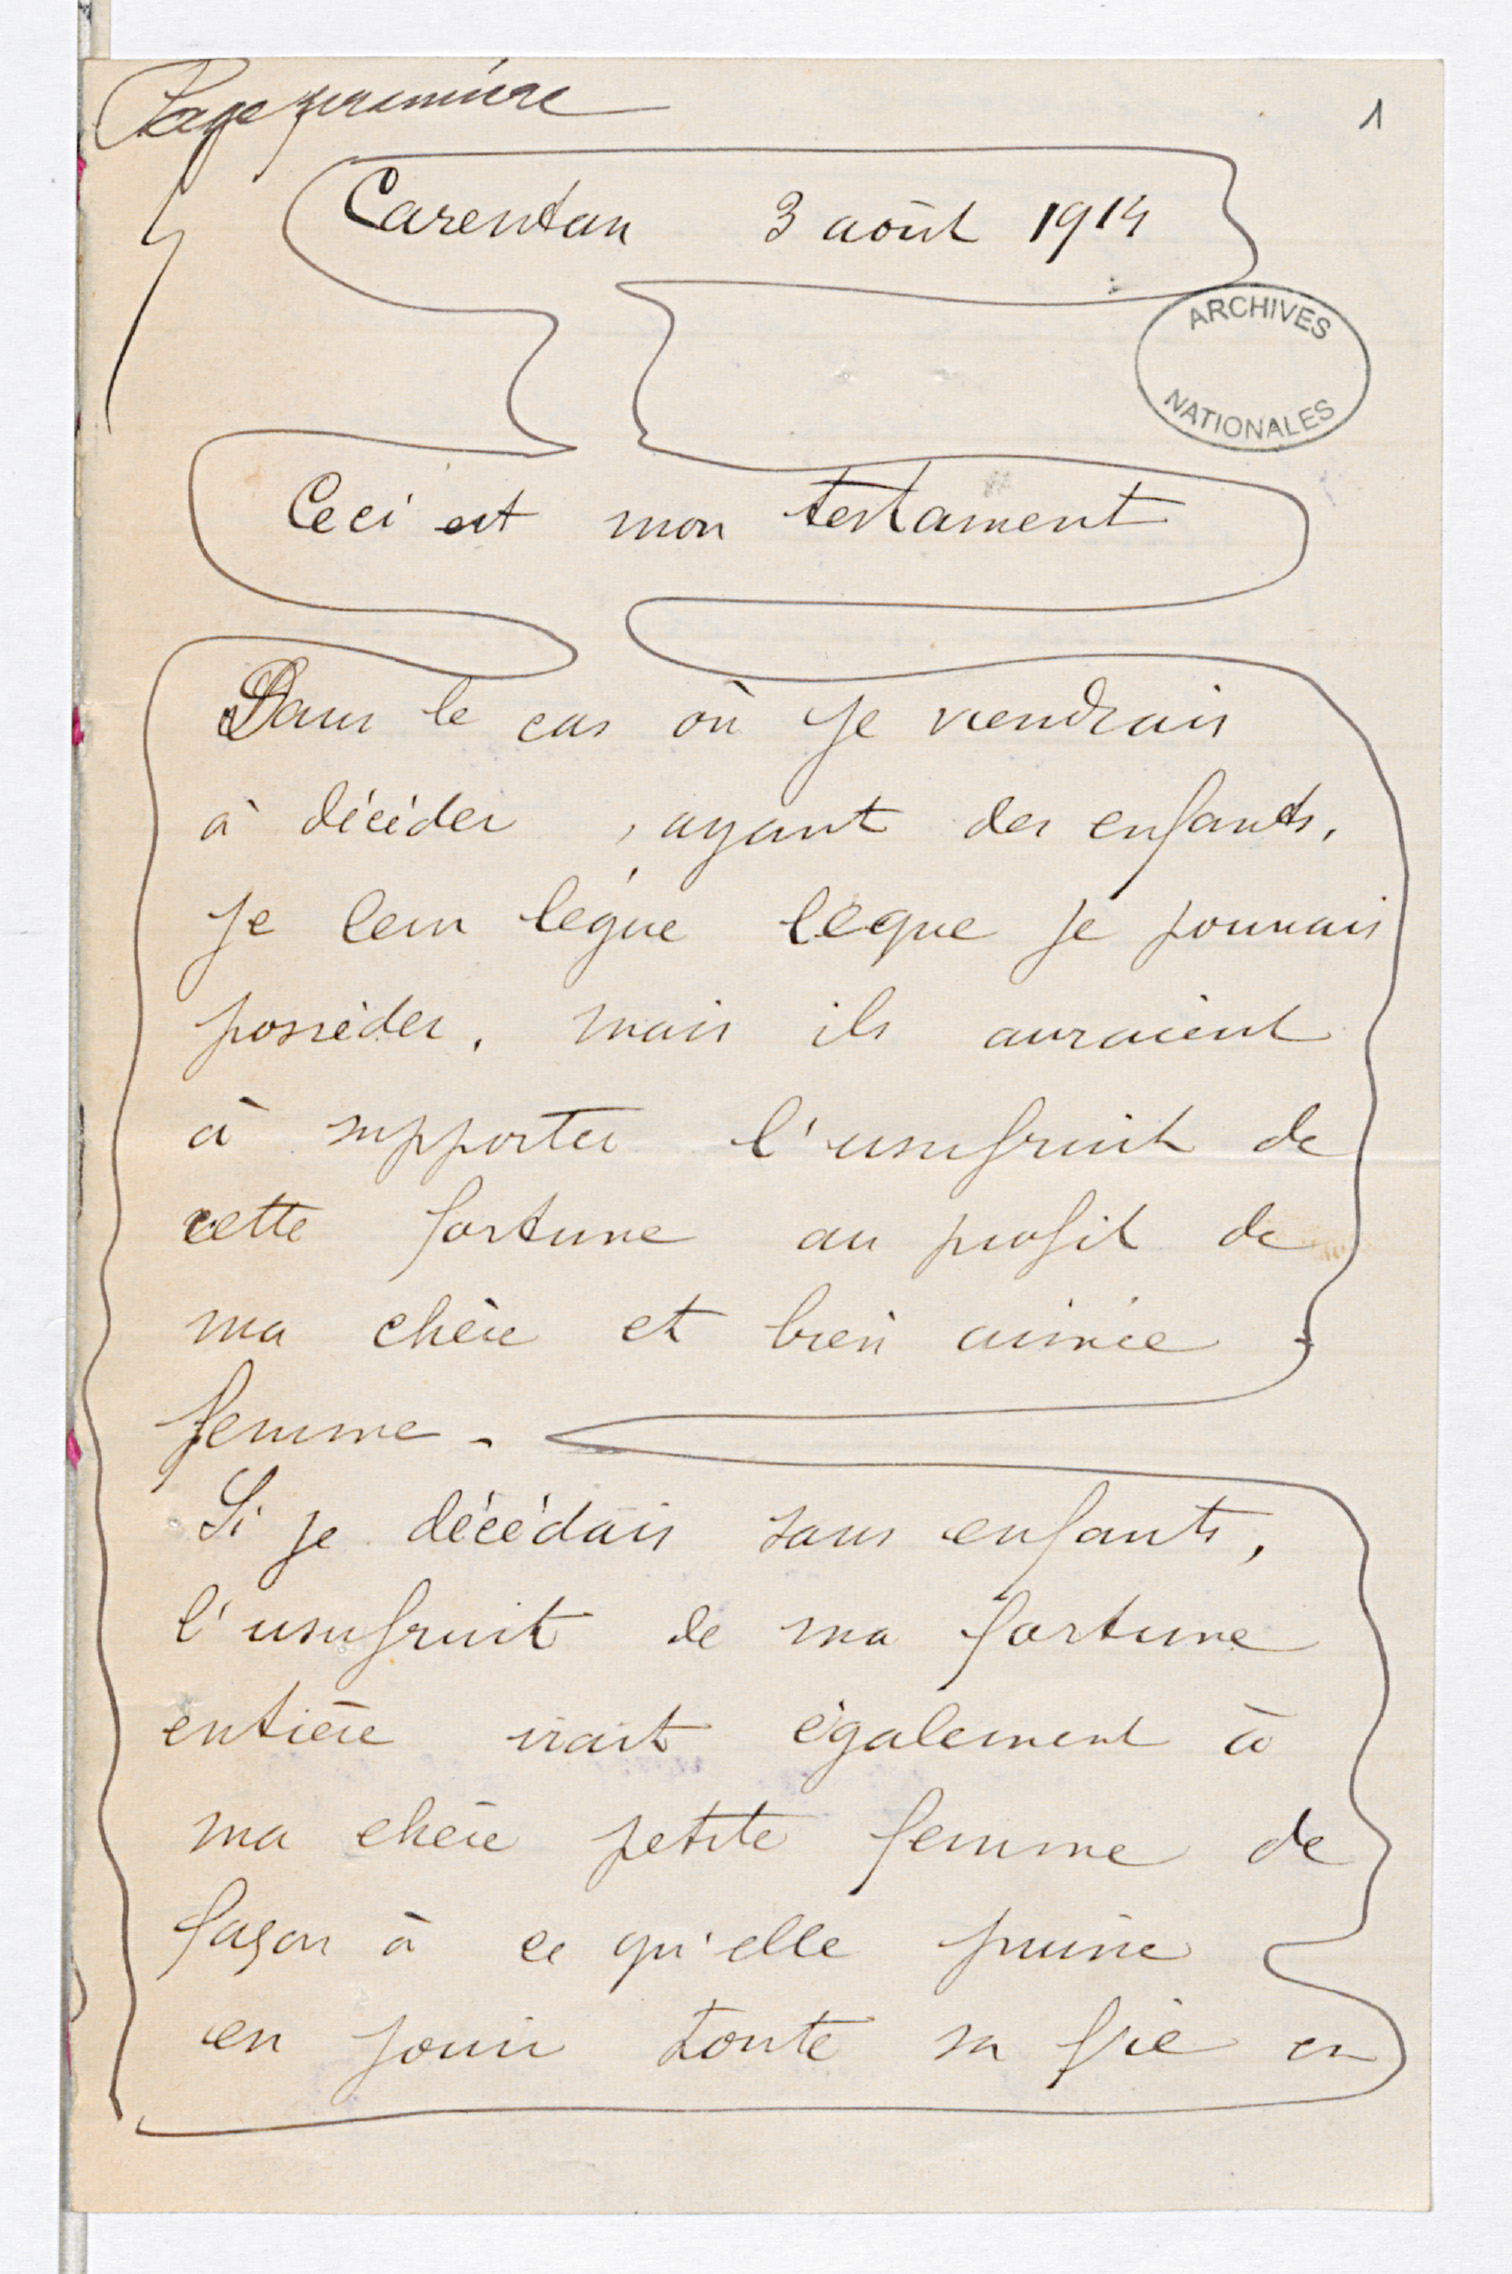 Page première
1
Carentan 3 août 1914
ARCHIVES
NATIONALES
Ceci est mon testament
Dans le cas où je viendrais
à décéder, ayant des enfants,
je leur lègue ce que je pourrais
posséder, mais ils auraient
à supporter l'usufruit de
cette fortune au profit de
ma chère et bien aimée
femme.
Si je décédais sans enfants,
l'usufruit de ma fortune
entière irait également à
ma chère petite femme de
façon à ce qu'elle puisse
en jouir toute sa vie en